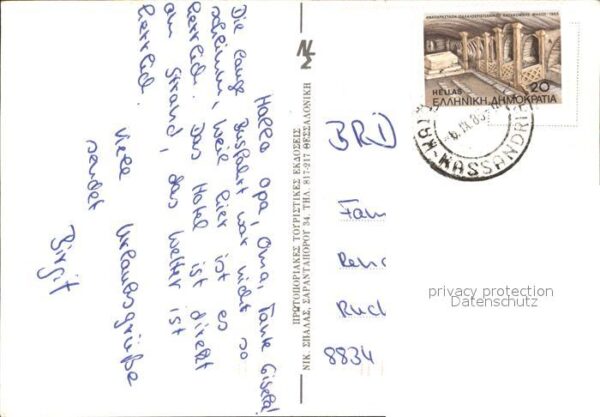 Hallo Opa, Oma, Tante Gisela!
Die lange Busfahrt war nicht so
schlimm, weil hier ist es so
herrlich. Das Hotel ist direkt
am Strand, das Wetter ist
herrlich.
Viele Urlaubsgrüße
sendet
Birgit
ΠΡΩΤΟΠΟΡΙΑΚΕΣ ΤΟΥΡΙΣΤΙΚΕΣ ΕΚΔΟΣΕΙΣ
ΝΙΚ. ΣΠΑΛΑΣ, ΣΑΡΑΝΤΑΠΟΡΟΥ 34, ΤΗΛ. 817-217 ΘΕΣΣΑΛΟΝΙΚΗ
HELLAS 20
ΕΛΛΗΝΙΚΗ ΔΗΜΟΚΡΑΤΙΑ
KASSANDRE
BRD
Fam
Rena
Rud
8834
privacy protection
Datenschutz